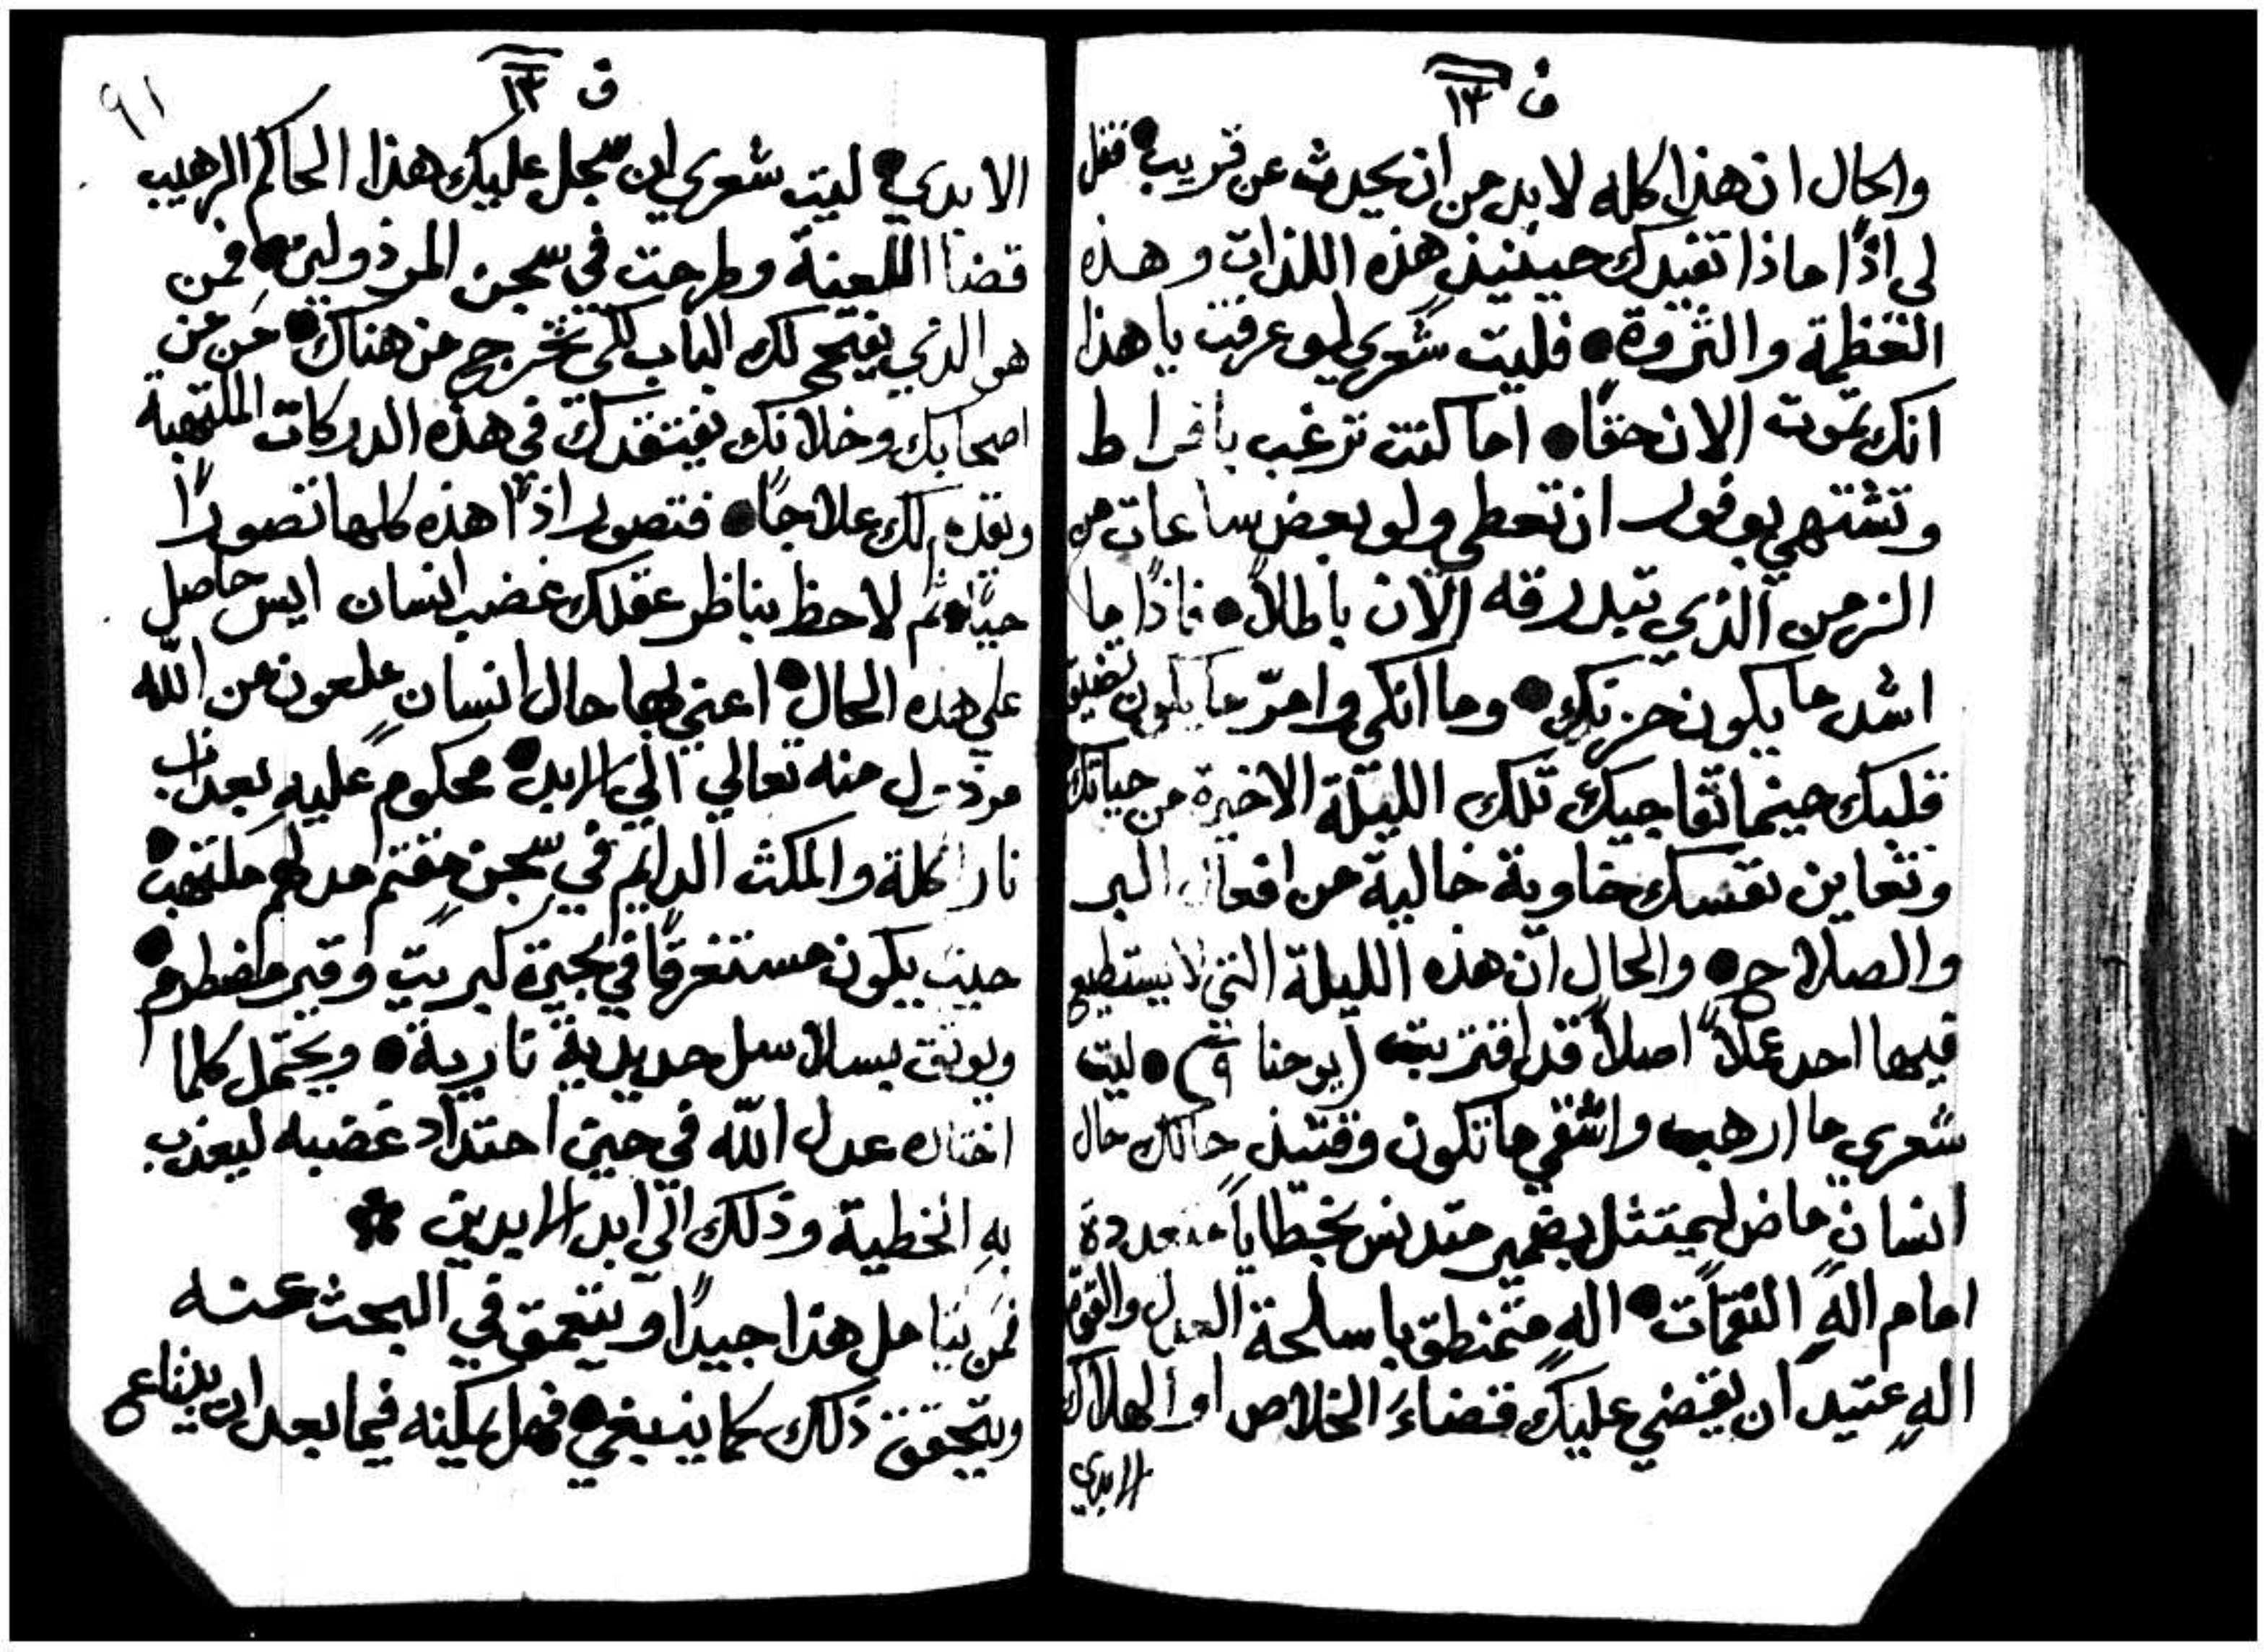 ف ١٣
والحال ان هذا كله لا بد من ان يحدث عن قريب • فقل
لي اذًا ماذا تفيدك حينيذٍ هذه اللذات وهذه
العظمة والثروة • فليت شعري لو عرفت يا هذا
انك تموت الان حقًا • اما كنت ترغب بافراط
وتشتهي بوفور ان تعطي ولو بعض ساعات من
الزمن الذي تبدرقه الان باطلاً • فاذًا ما
اشد ما يكون حزنك • وما انكى وامرّ ما يكون تضيق
قلبك حينما تفاجيك تلك الليلة الاخيرة من حياتك
وتعاين نفسك خاوية خالية من افعال البر
والصلاح • والحال ان هذه الليلة التي لا يستطيع
فيها احد عملاً اصلاً قد اقتربت (يوحنا ٩) • ليت
شعري ما ارهب واشقي ما تكون وقتيذٍ حالك حال
انسانٍ ماضٍ ليمتثل بضمير متدنس بخطايا متعددة
امام الهٍ النقمات • الهٍ متمنطق باسلحة العدل والقوة
الهٍ عتيد ان يقضي عليك قضاءَ الخلاص او الهلاك
الابدي
٩١
ق ١٣
الابدي • ليت شعري ان سجل عليك هذا الحاكم الرهيب
قضا اللعنة وطرحت في سجن المرذولين • فمن
هو الذي يفتح لك الباب لكي تخرج من هناك • مَن مِن
اصحابك وخلانك يفتقدك في هذه الدركات الملتهبة
ويقدم لك علاجًا • فتصور اذًا هذه كلها تصورًا
حيًا • ثم لاحظ بناظر عقلك غضب انسان ايس حاصل
على هذه الحال • اعني بها حال انسانٍ ملعون من الله
مرذول منه تعالي الى الابد • محكوم عليهِ بعذاب
نار اكلة والمكث الدايم في سجنٍ مقتم مدلهم ملتهب •
حيث يكون مستغرقًا في بحيرة كبريت وقير مضطرم •
ويوثق بسلاسل حديدية نارية • ويحتمل كلما
اختاره عدل الله في حين احتداد غضبه ليعذب
بهِ الخطية وذلك الى ابد الابدين
فمَن يتامل هذا جيدًا ويتعمق في البحث عنه
ويتحقق ذلك كما ينبغي • فهل يمكنه فيما بعد ان يذاع